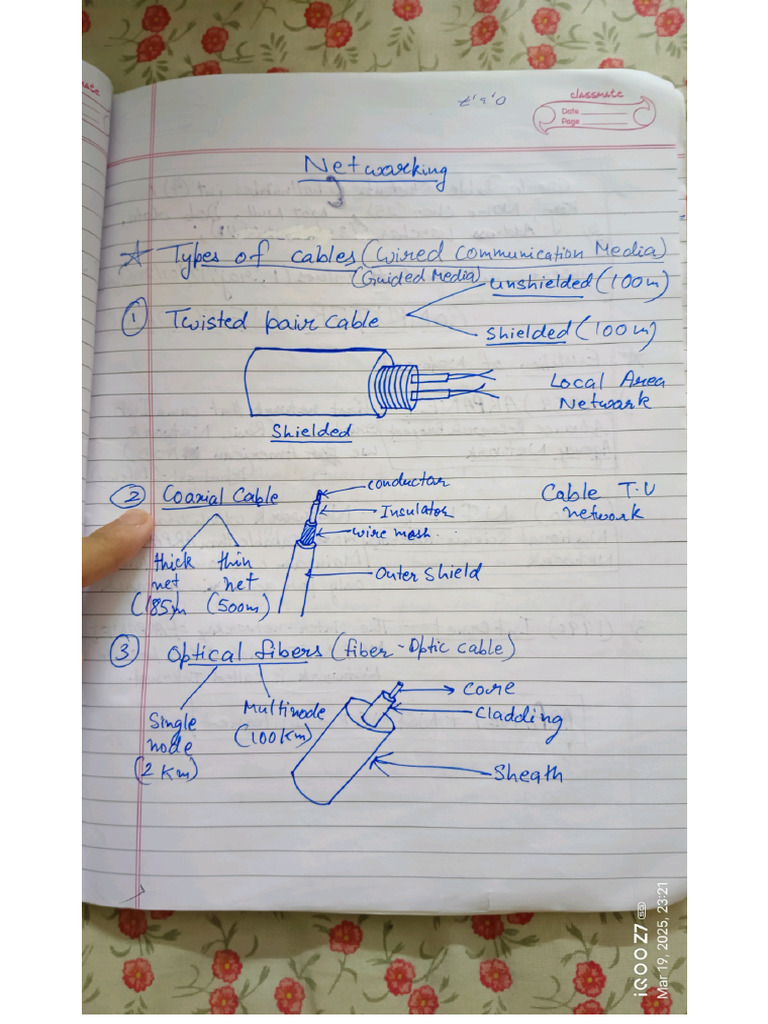 classmate
Date
Page
Networking
☆ Types of cables (Wired Communication Media)
(Guided Media)
① Twisted pair cable
Unshielded (100m)
Shielded (100m)
Local Area
Network
Shielded
② Coaxial Cable
thick
net
(185)m
thin
net
(500m)
conductor
Insulator
wire mesh
Outer Shield
Cable T.V
network
③ Optical fibers (fiber-Optic cable)
Single
node
(2 Km)
Multinode
(100Km)
Core
Cladding
Sheath
iQOO Z7 5G
Mar 19, 2025, 23:21